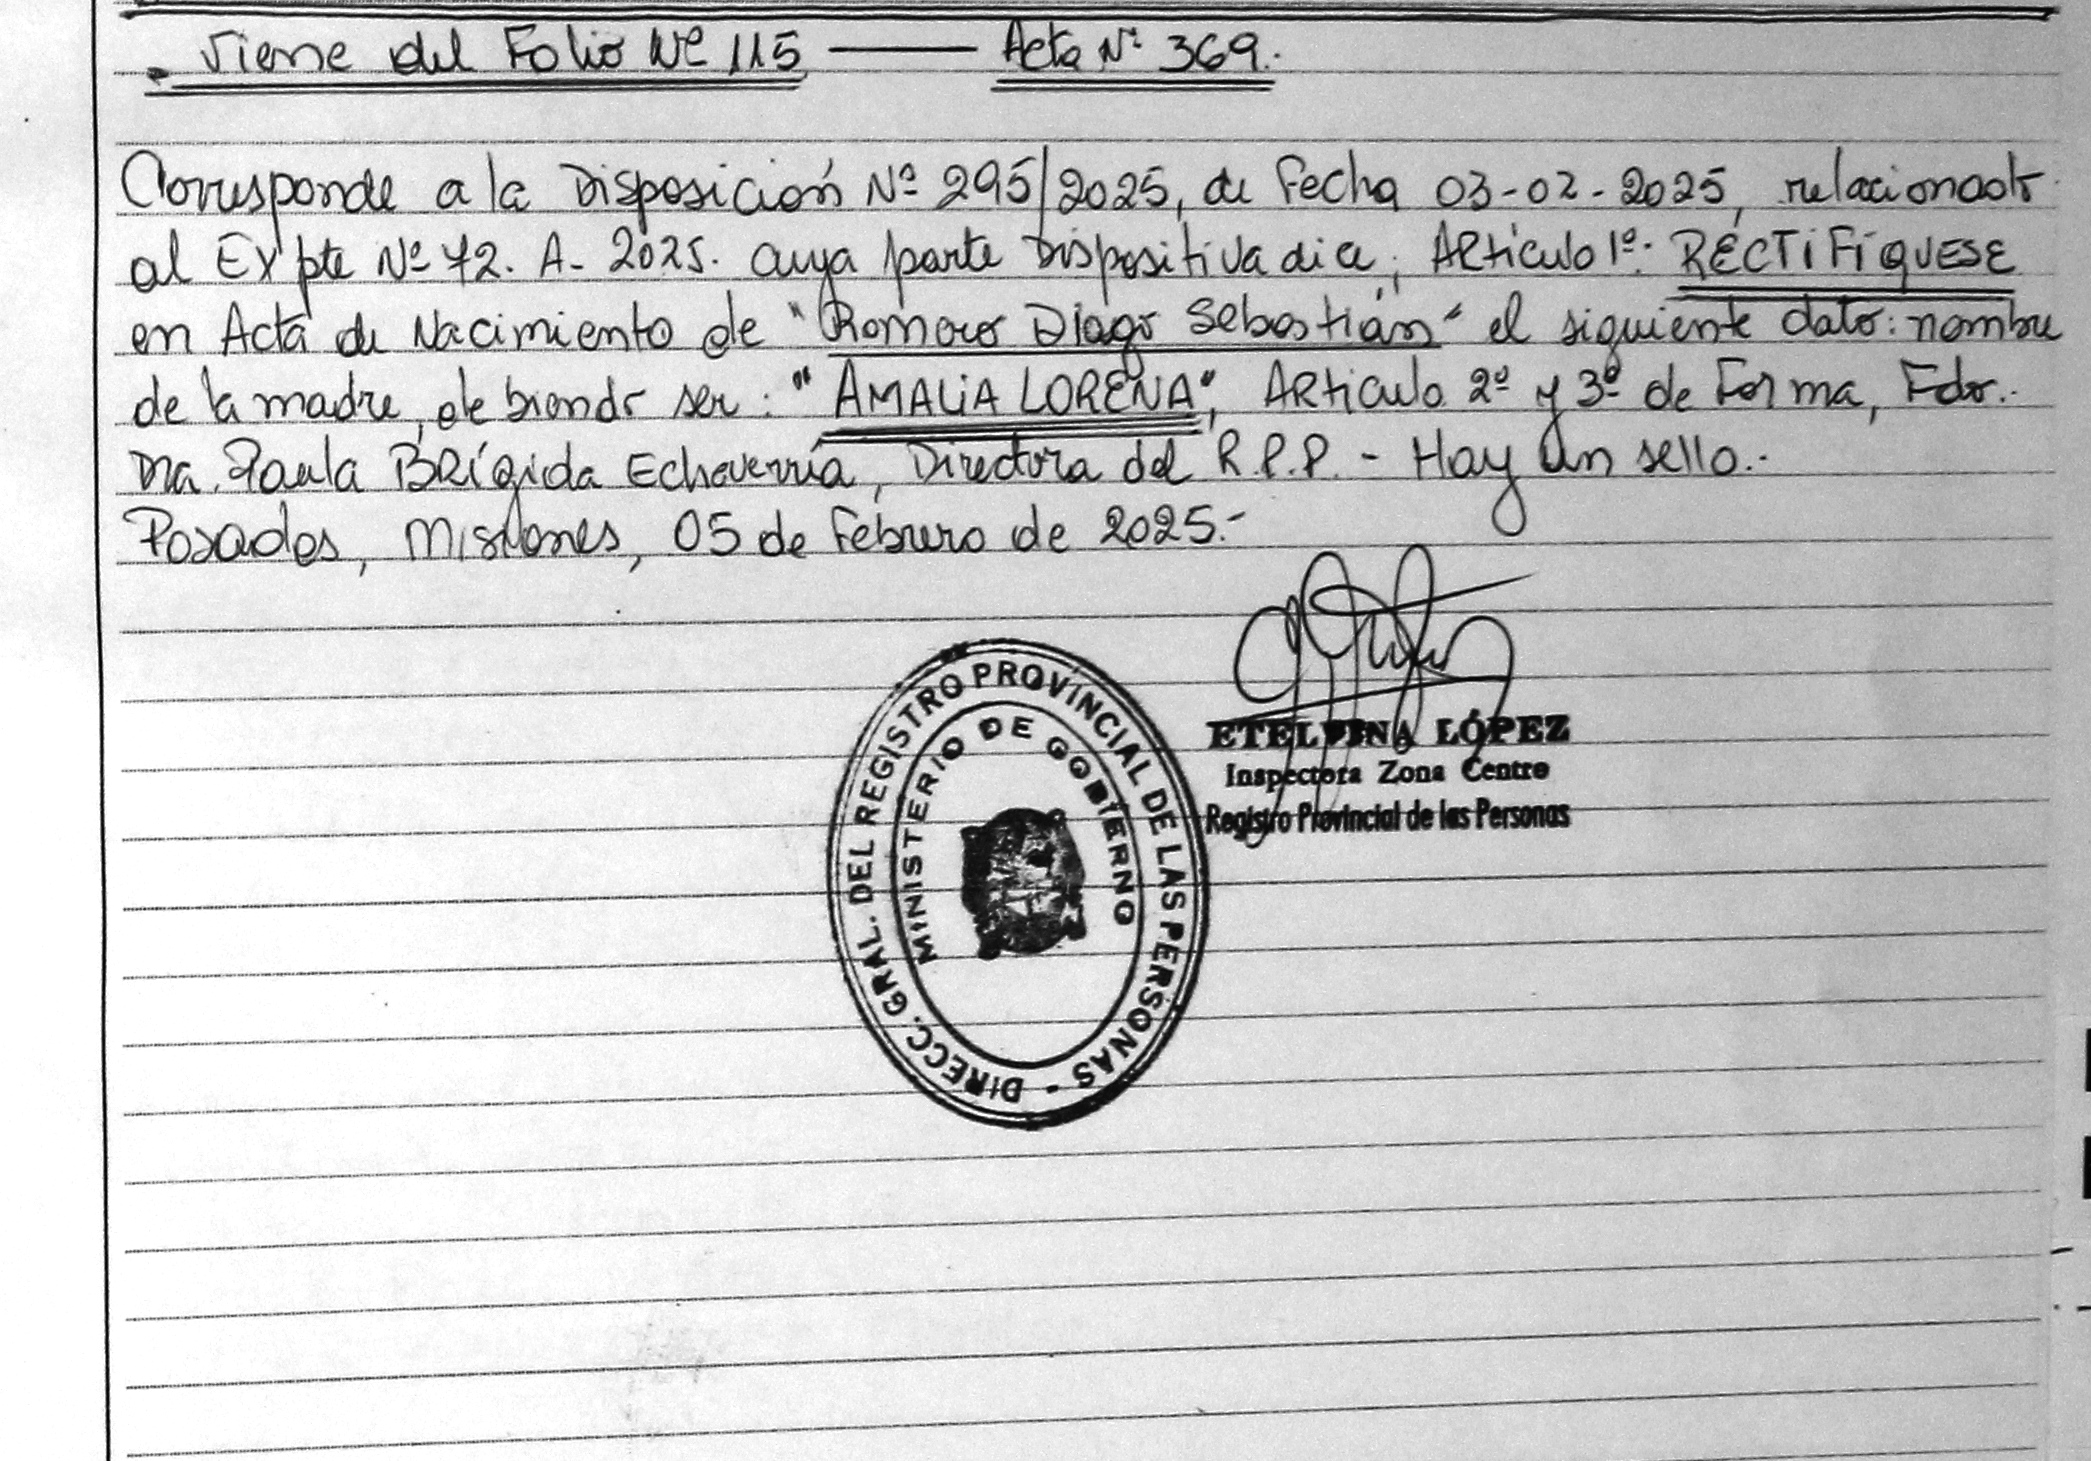 Viene del Folio Nº 115 — Acta Nº 369.-
Corresponde a la Disposición Nº 295/2025, de Fecha 03-02-2025, relacionado
al Expte Nº 42. A- 2025. cuya parte Dispositiva dice; Articulo 1º: RECTIFÍQUESE
en Acta de Nacimiento de "Romero Diago Sebastián" el siguiente dato: nombre
de la madre, debiendo ser: "AMALIA LORENA", Articulo 2º y 3º de Forma, Fdo.-
Dra. Paula Brígida Echeverría, Directora del R.P.P. - Hay un sello.-
Posadas, Misiones, 05 de Febrero de 2025.-
ETELVINA LÓPEZ
Inspectora Zona Centro
Registro Provincial de las Personas
DIRECC. GRAL. DEL REGISTRO PROVINCIAL DE LAS PERSONAS -
MINISTERIO DE GOBIERNO